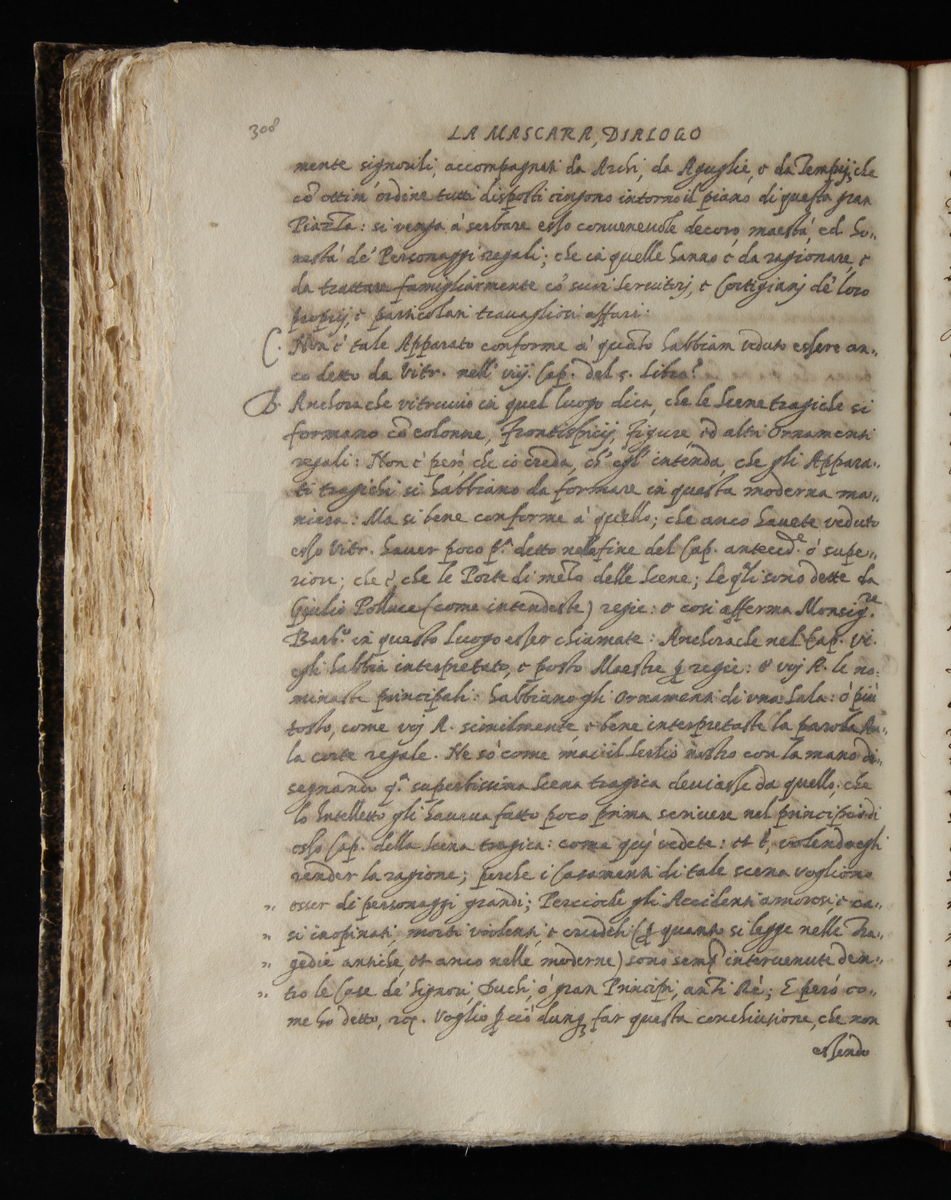 308
LA MASCARA, DIALOGO
mente signorili, accompagnati da Archi, da Aguglie, e da Tempij, che
cõ ottim' ordine tutti disposti cingono intorno il piano di questa gran
Piazza: si venga à serbare esso convenevole decoro, maestà, ed ho„
nestà de' Personaggi regali; che in quelle hanno è da ragionare, e
da trattare famigliarmente cõ suoi servitorj, e Cortigianj de' loro
proprij, e particolari travagliosi affari:
C. Non è tale Apparato conforme a' quãto habbiam veduto essere an„
co detto da Vitr. nell' vij. Cap. del 5. libro?
B. Anchora che vitruvio in quel luogo dica, che le scene tragiche si
formano cõ colonne, frontispicij, figure, ed altri ornamenti
regali: Non è però, che io creda, ch' egl' intenda, che gli Appara„
ti tragichi si habbiano da formare in questa moderna ma„
niera: Ma si bene conforme a' quello; che anco havete veduto
esso Vitr. haver poco pª detto nella fine del Cap. antecedᵉ. ò supe„
riori; che è, che le Porte di mezo delle Scene; le qli sono dette da
Giulio Polluce (come intendeste) regie: e cosi afferma Monsigre.
Barbº. in questo luogo esser chiamate: Anchorache nel Cap. vi.
egli habbia interpretato, e posto Maestre p regie: e voj A. le no„
minaste principali: habbiano gli ornamenti di una Sala: ò più
tosto, come voj A. similmente e bene interpretaste la parola Au„
la corte regale. Ne sò come mai il Serlio nostro con la mano di„
segnando qª. superbissima Scena tragica deviasse da quello; che
lo Intelletto gli haveva fatto poco prima scrivere nel principio di
esso Cap. della Scena tragica: come quì vedete: et è, volendo egli
render la ragione; perche i Casamenti di tale scena vogliono
„ esser di personaggi grandi; Percioche gli Accidenti amorosi, e ca„
„ si inopinati, morti violenti, e crudeli (p quanto si legge nelle Tra„
„ gedie antiche, et anco nelle moderne) sono semp intervenute den„
„ tro le Case de' Signori, Duchi, ò gran Principi, anzi Rè; E però co„
me ho detto, Voglio p ciò dunq far questa conchiusione, che non
essendo